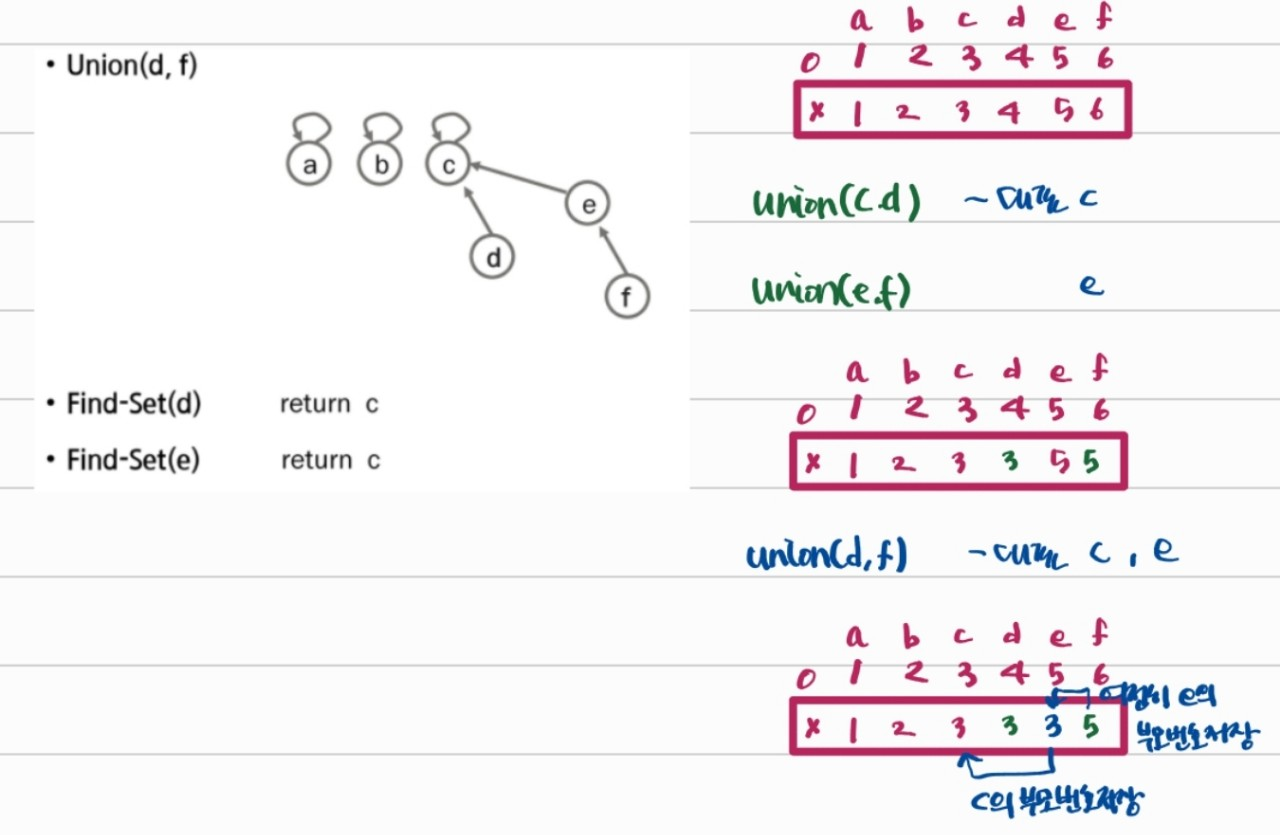 • Union(d, f)
a b c
e
d
f
• Find-Set(d) return c
• Find-Set(e) return c
a b c d e f
0 1 2 3 4 5 6
x 1 2 3 4 5 6
union(c.d) ~ 대표는 c
union(e.f) e
a b c d e f
0 1 2 3 4 5 6
x 1 2 3 3 5 5
union(d,f) ~ 대표는 c, e
a b c d e f
0 1 2 3 4 5 6
x 1 2 3 3 3 5
여전히 e의
부모번호저장
c의 부모번호저장